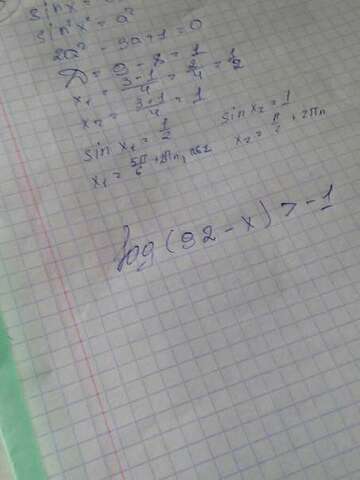 sin x =
sin²x = a²
2a² - 3a + 1 = 0
D = 9 - 8 = 1
x₁ = (3-1)/4 = 2/4 = 1/2
x₂ = (3+1)/4 = 1
sin x₁ = 1/2
x₁ = 5π/6 + 2πn,
sin x₂ = 1
x₂ = π/2 + 2πn
log(92 - x) > -1